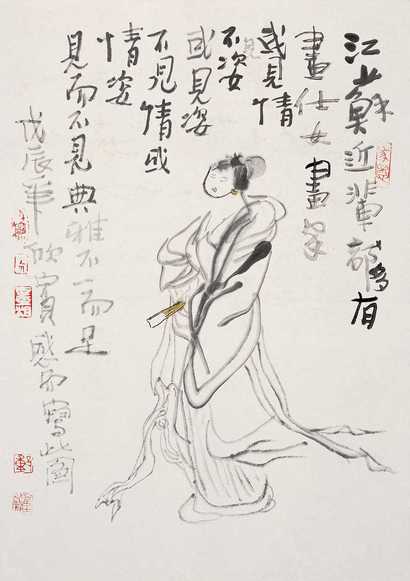 江蘇近輩有
畫仕女畫家
或見情
不見姿
或見姿
不見情或
情姿
見而不見典雅不一而足
戊辰年欣賞感而寫此圖